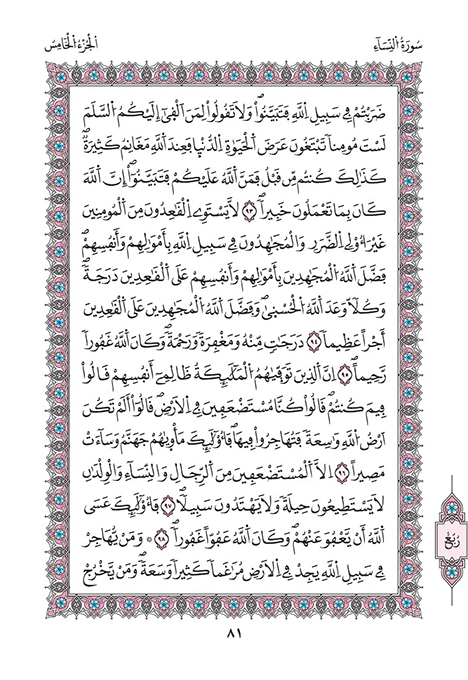 سُورَةُ النِّسَاءِ
الْجُزْءُ الْخَامِسُ
ضَرَبْتُمْ فِي سَبِيلِ اِللَّهِ فَتَبَيَّنُواْ وَلَا تَقُولُواْ لِمَنَ اَلْقَىٰ إِلَيْكُمُ السَّلَمَ
لَسْتَ مُومِناً تَبْتَغُونَ عَرَضَ اَلْحَيَوٰةِ اِلدُّنْيَا فَعِندَ اَللَّهِ مَغَانِمُ كَثِيرَةٌ
كَذَٰلِكَ كُنتُم مِّن قَبْلُ فَمَنَّ اَللَّهُ عَلَيْكُمْ فَتَبَيَّنُواْ إِنَّ اَللَّهَ
كَانَ بِمَا تَعْمَلُونَ خَبِيراً ٩٣ لَّا يَسْتَوِي اِلْقَٰعِدُونَ مِنَ اَلْمُومِنِينَ
غَيْرَ أُوْلِي اِلضَّرَرِ وَالْمُجَٰهِدُونَ فِي سَبِيلِ اِللَّهِ بِأَمْوَٰلِهِمْ وَأَنفُسِهِمْ
فَضَّلَ اَللَّهُ اُلْمُجَٰهِدِينَ بِأَمْوَٰلِهِمْ وَأَنفُسِهِمْ عَلَى اَلْقَٰعِدِينَ دَرَجَةً
وَكُلّاً وَعَدَ اَللَّهُ اُلْحُسْنَىٰ وَفَضَّلَ اَللَّهُ اُلْمُجَٰهِدِينَ عَلَى اَلْقَٰعِدِينَ
أَجْراً عَظِيماً ٩٤ دَرَجَٰتٍ مِّنْهُ وَمَغْفِرَةً وَرَحْمَةً وَكَانَ اَللَّهُ غَفُوراً
رَّحِيماً ٩٥ اِنَّ اَلذِينَ تَوَفَّيٰهُمُ اُلْمَلَٰئِكَةُ ظَالِمِي أَنفُسِهِمْ قَالُواْ
فِيمَ كُنتُمْ قَالُواْ كُنَّا مُسْتَضْعَفِينَ فِي اِلْأَرْضِ قَالُواْ أَلَمْ تَكُنَ
اَرْضُ اُللَّهِ وَٰسِعَةً فَتُهَاجِرُواْ فِيهَا فَأُوْلَٰئِكَ مَأْوَيٰهُمْ جَهَنَّمُ وَسَاءَتْ
مَصِيراً ٩٦ اِلَّا اَلْمُسْتَضْعَفِينَ مِنَ اَلرِّجَالِ وَالنِّسَاءِ وَالْوِلْدَٰنِ
لَا يَسْتَطِيعُونَ حِيلَةً وَلَا يَهْتَدُونَ سَبِيلاً ٩٧ فَأُوْلَٰئِكَ عَسَى
اَللَّهُ أَنْ يَّعْفُوَ عَنْهُمْ وَكَانَ اَللَّهُ عَفُوّاً غَفُوراً ٩٨ وَمَنْ يُّهَاجِرْ
فِي سَبِيلِ اِللَّهِ يَجِدْ فِي اِلْأَرْضِ مُرَٰغَماً كَثِيراً وَسَعَةً وَمَنْ يَّخْرُجْ
رُبُعْ
٨١